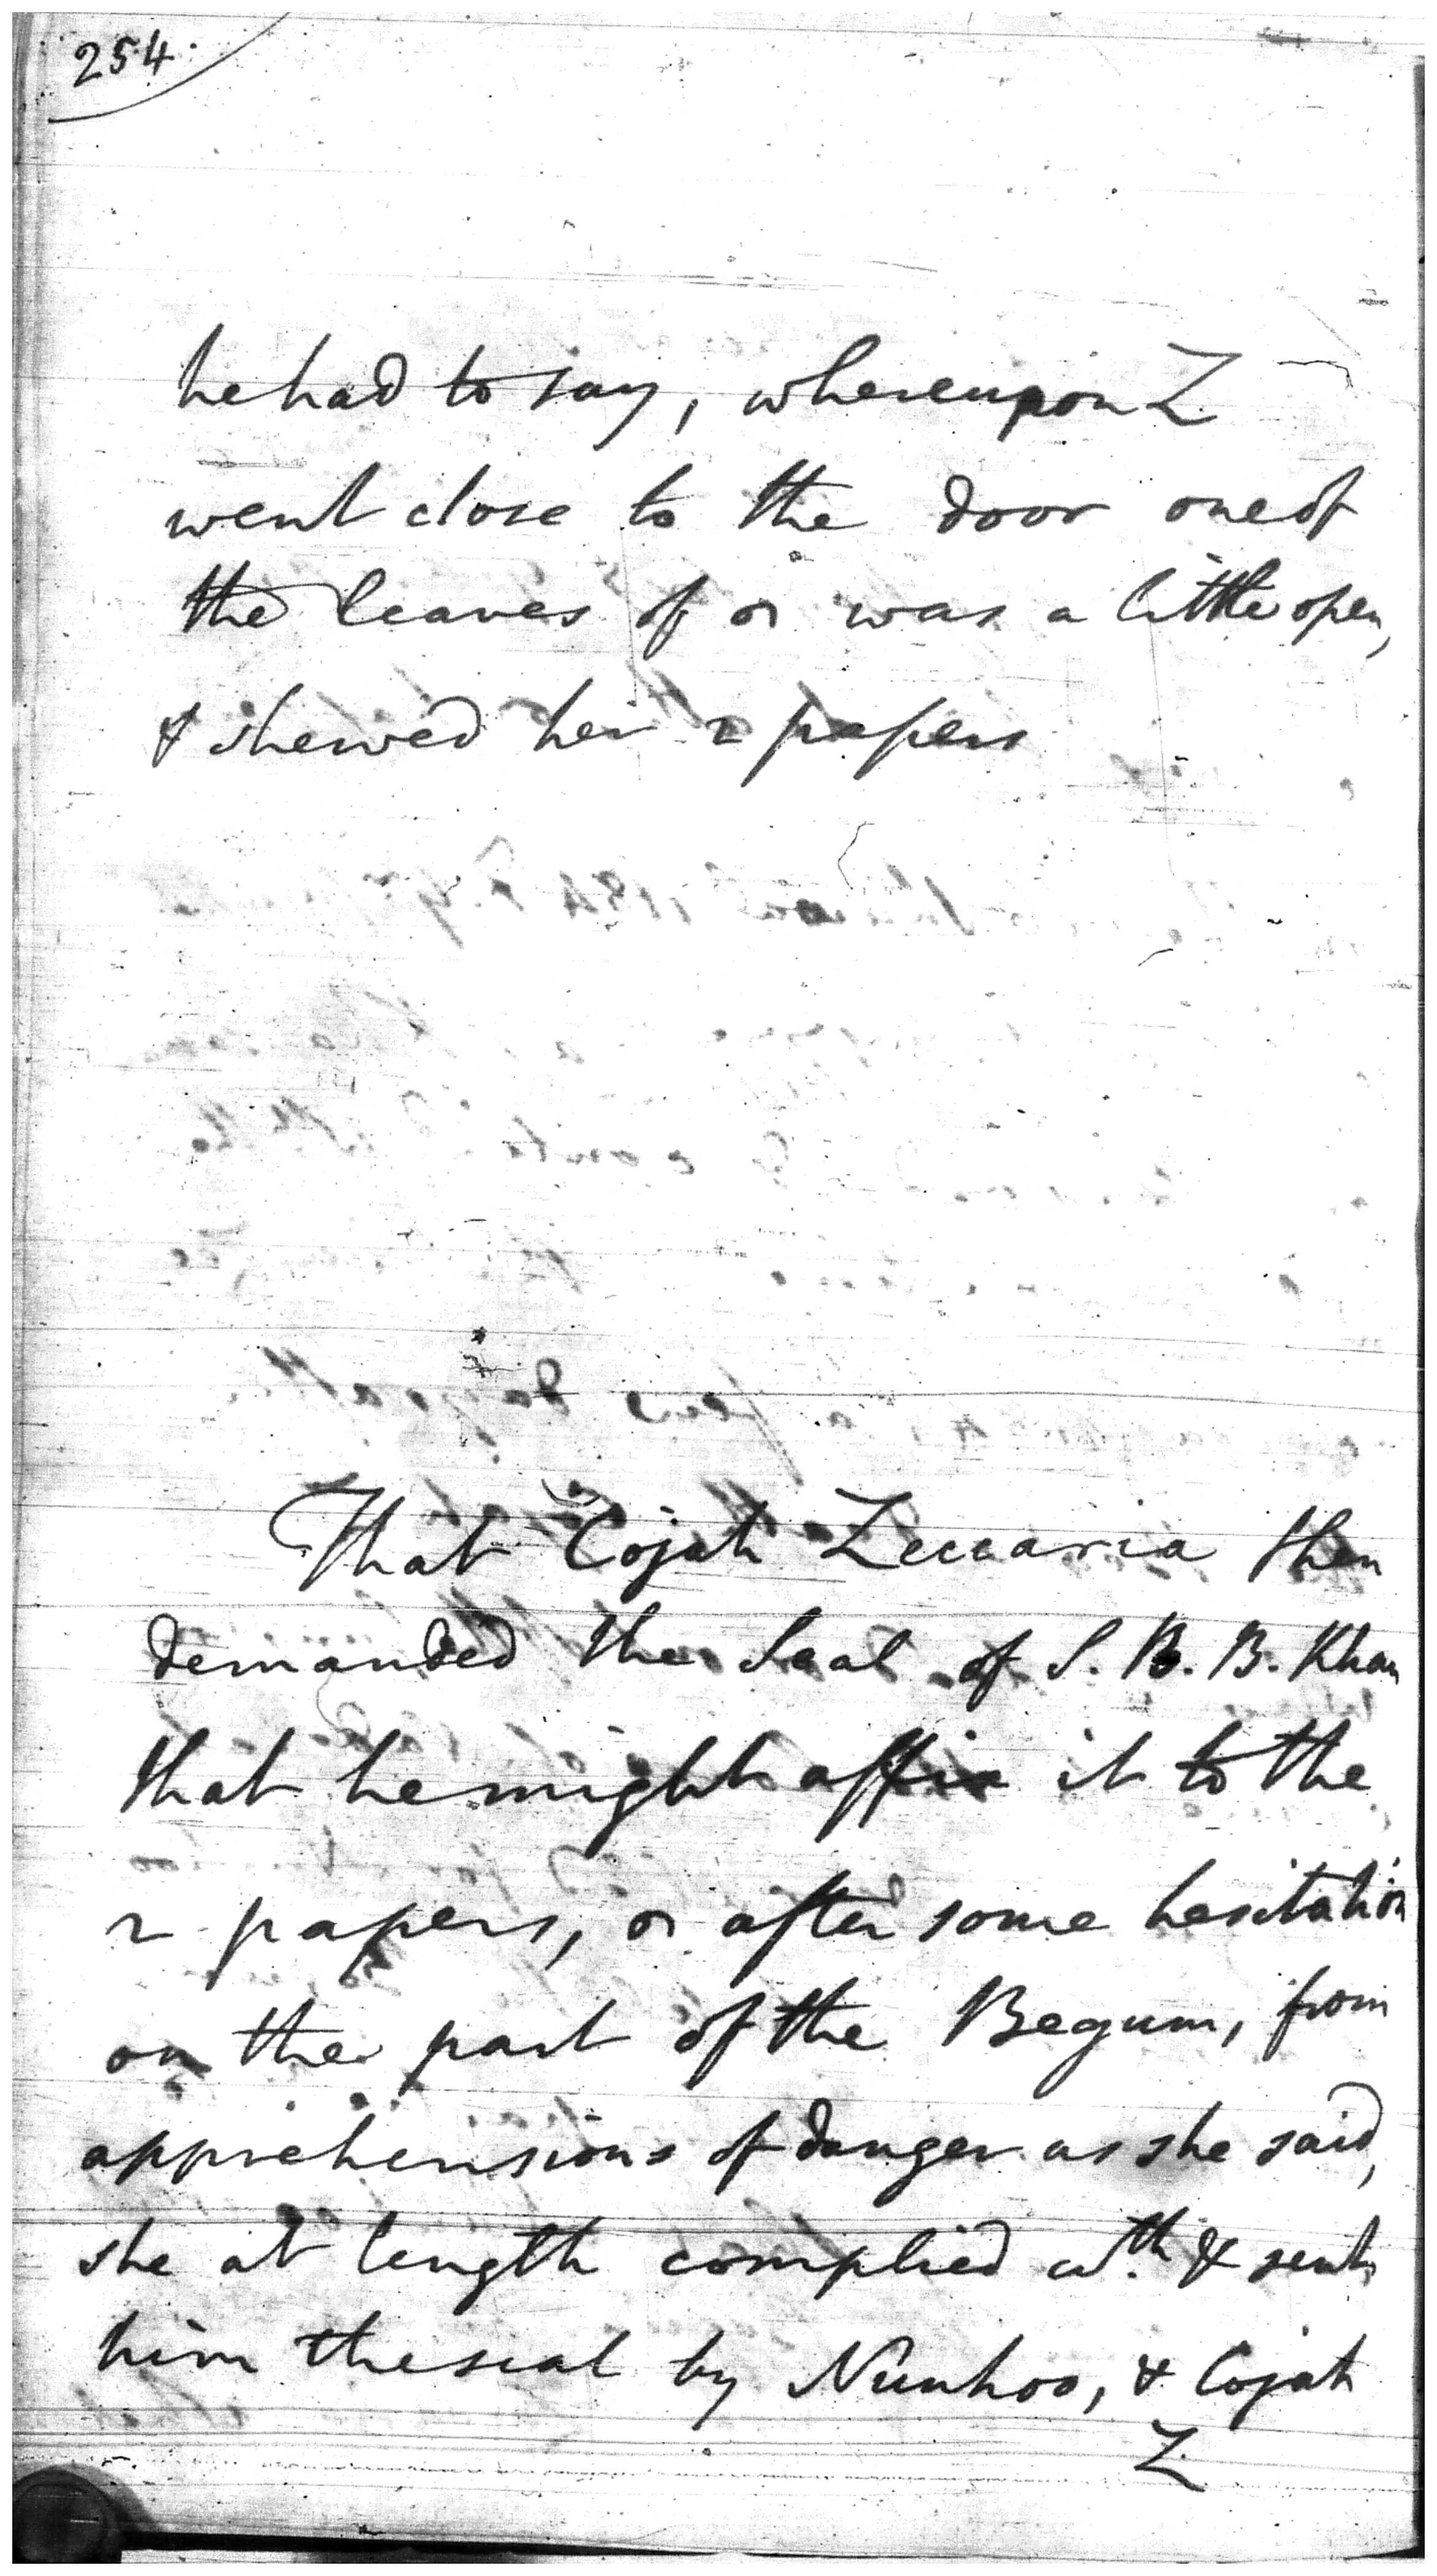 254.
he had to say, whereupon Z
went close to the door one of
the leaves of or was a little open,
& shewed her 2 papers
That Cojah Zeccaria then
demanded the Seal of S. B. B. Khan
that he might affix it to the
2 papers, or after some hesitation
on the part of the Begum, from
apprehensions of danger as she said,
she at length complied wth. & sent
him the seal by Nunhoo, & Cojah
Z